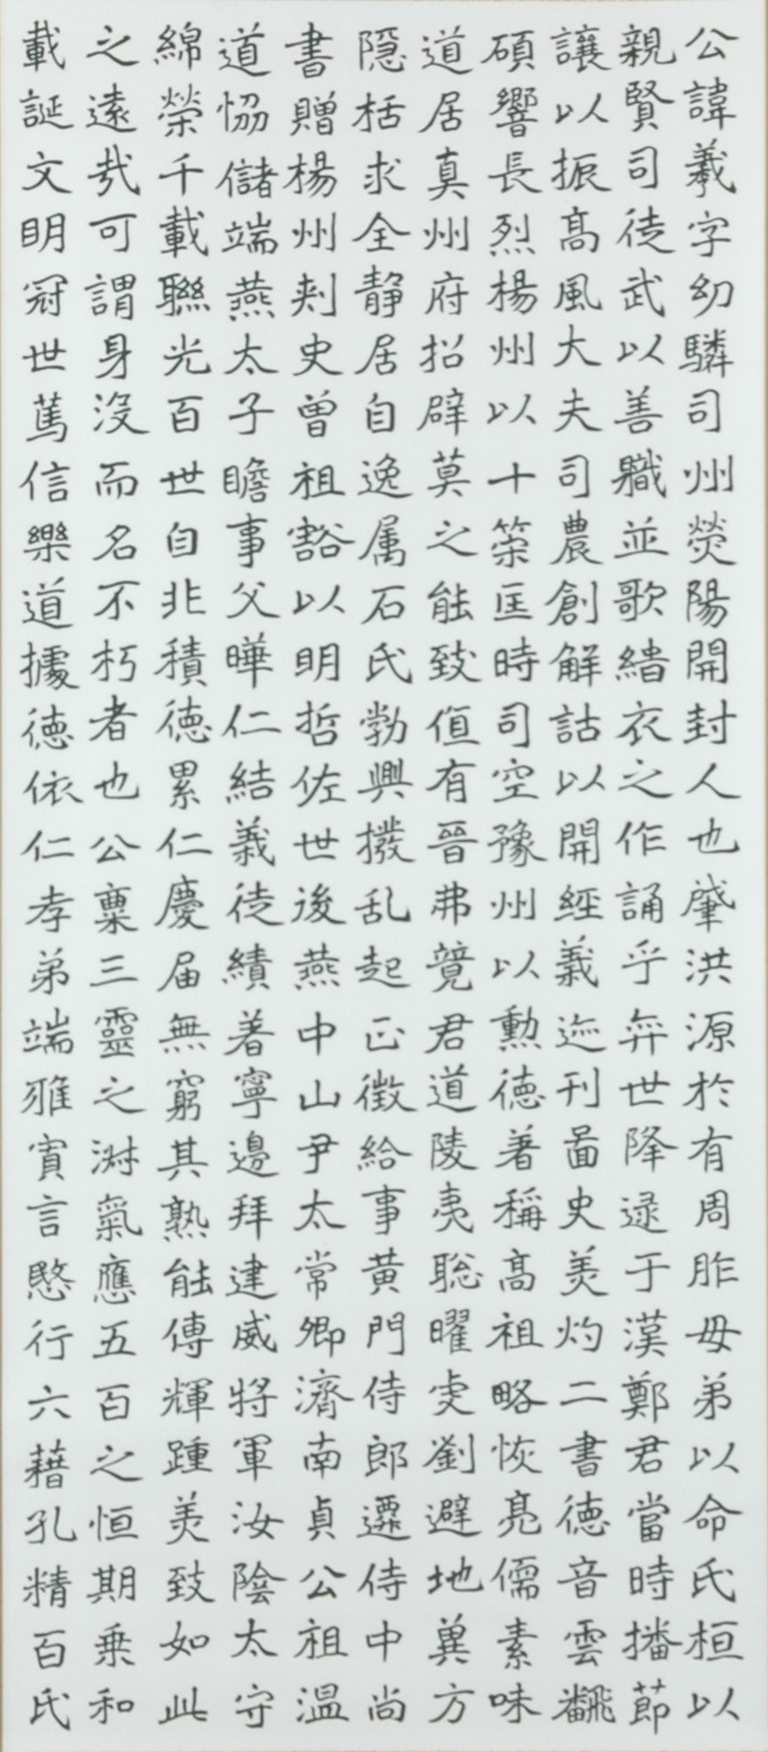 公諱羲字幼驎司州熒陽開封人也肇洪源於有周胙母弟以命氏桓以
親賢司徒武以善職並歌緇衣之作誦乎弈世降逯于漢鄭君當時播節
讓以振高風大夫司農創解詁以開經義迹刊啚史美灼二書德音雲飜
碩響長烈楊州以十策匡時司空豫州以勲德著稱高祖略恢亮儒素味
道居真州府招辟莫之能致值有晉弗競君道陵夷聡曜虔劉避地冀方
隱栝求全静居自逸属石氏勃興撥乱起正徵給事黄門侍郎遷侍中尚
書贈楊州刺史曾祖豁以明哲佐世後燕中山尹太常卿濟南貞公祖温
道恊儲端燕太子瞻事父曄仁結義徒績著寧邊拜建威將軍汝陰太守
綿榮千載聯光百世自非積德累仁慶届無窮其熟能傳輝踵美致如此
之遠哉可謂身没而名不朽者也公稟三靈之淑氣應五百之恒期乗和
載誕文明冠世篤信樂道據德依仁孝弟端雅賓言慜行六藉孔精百氏